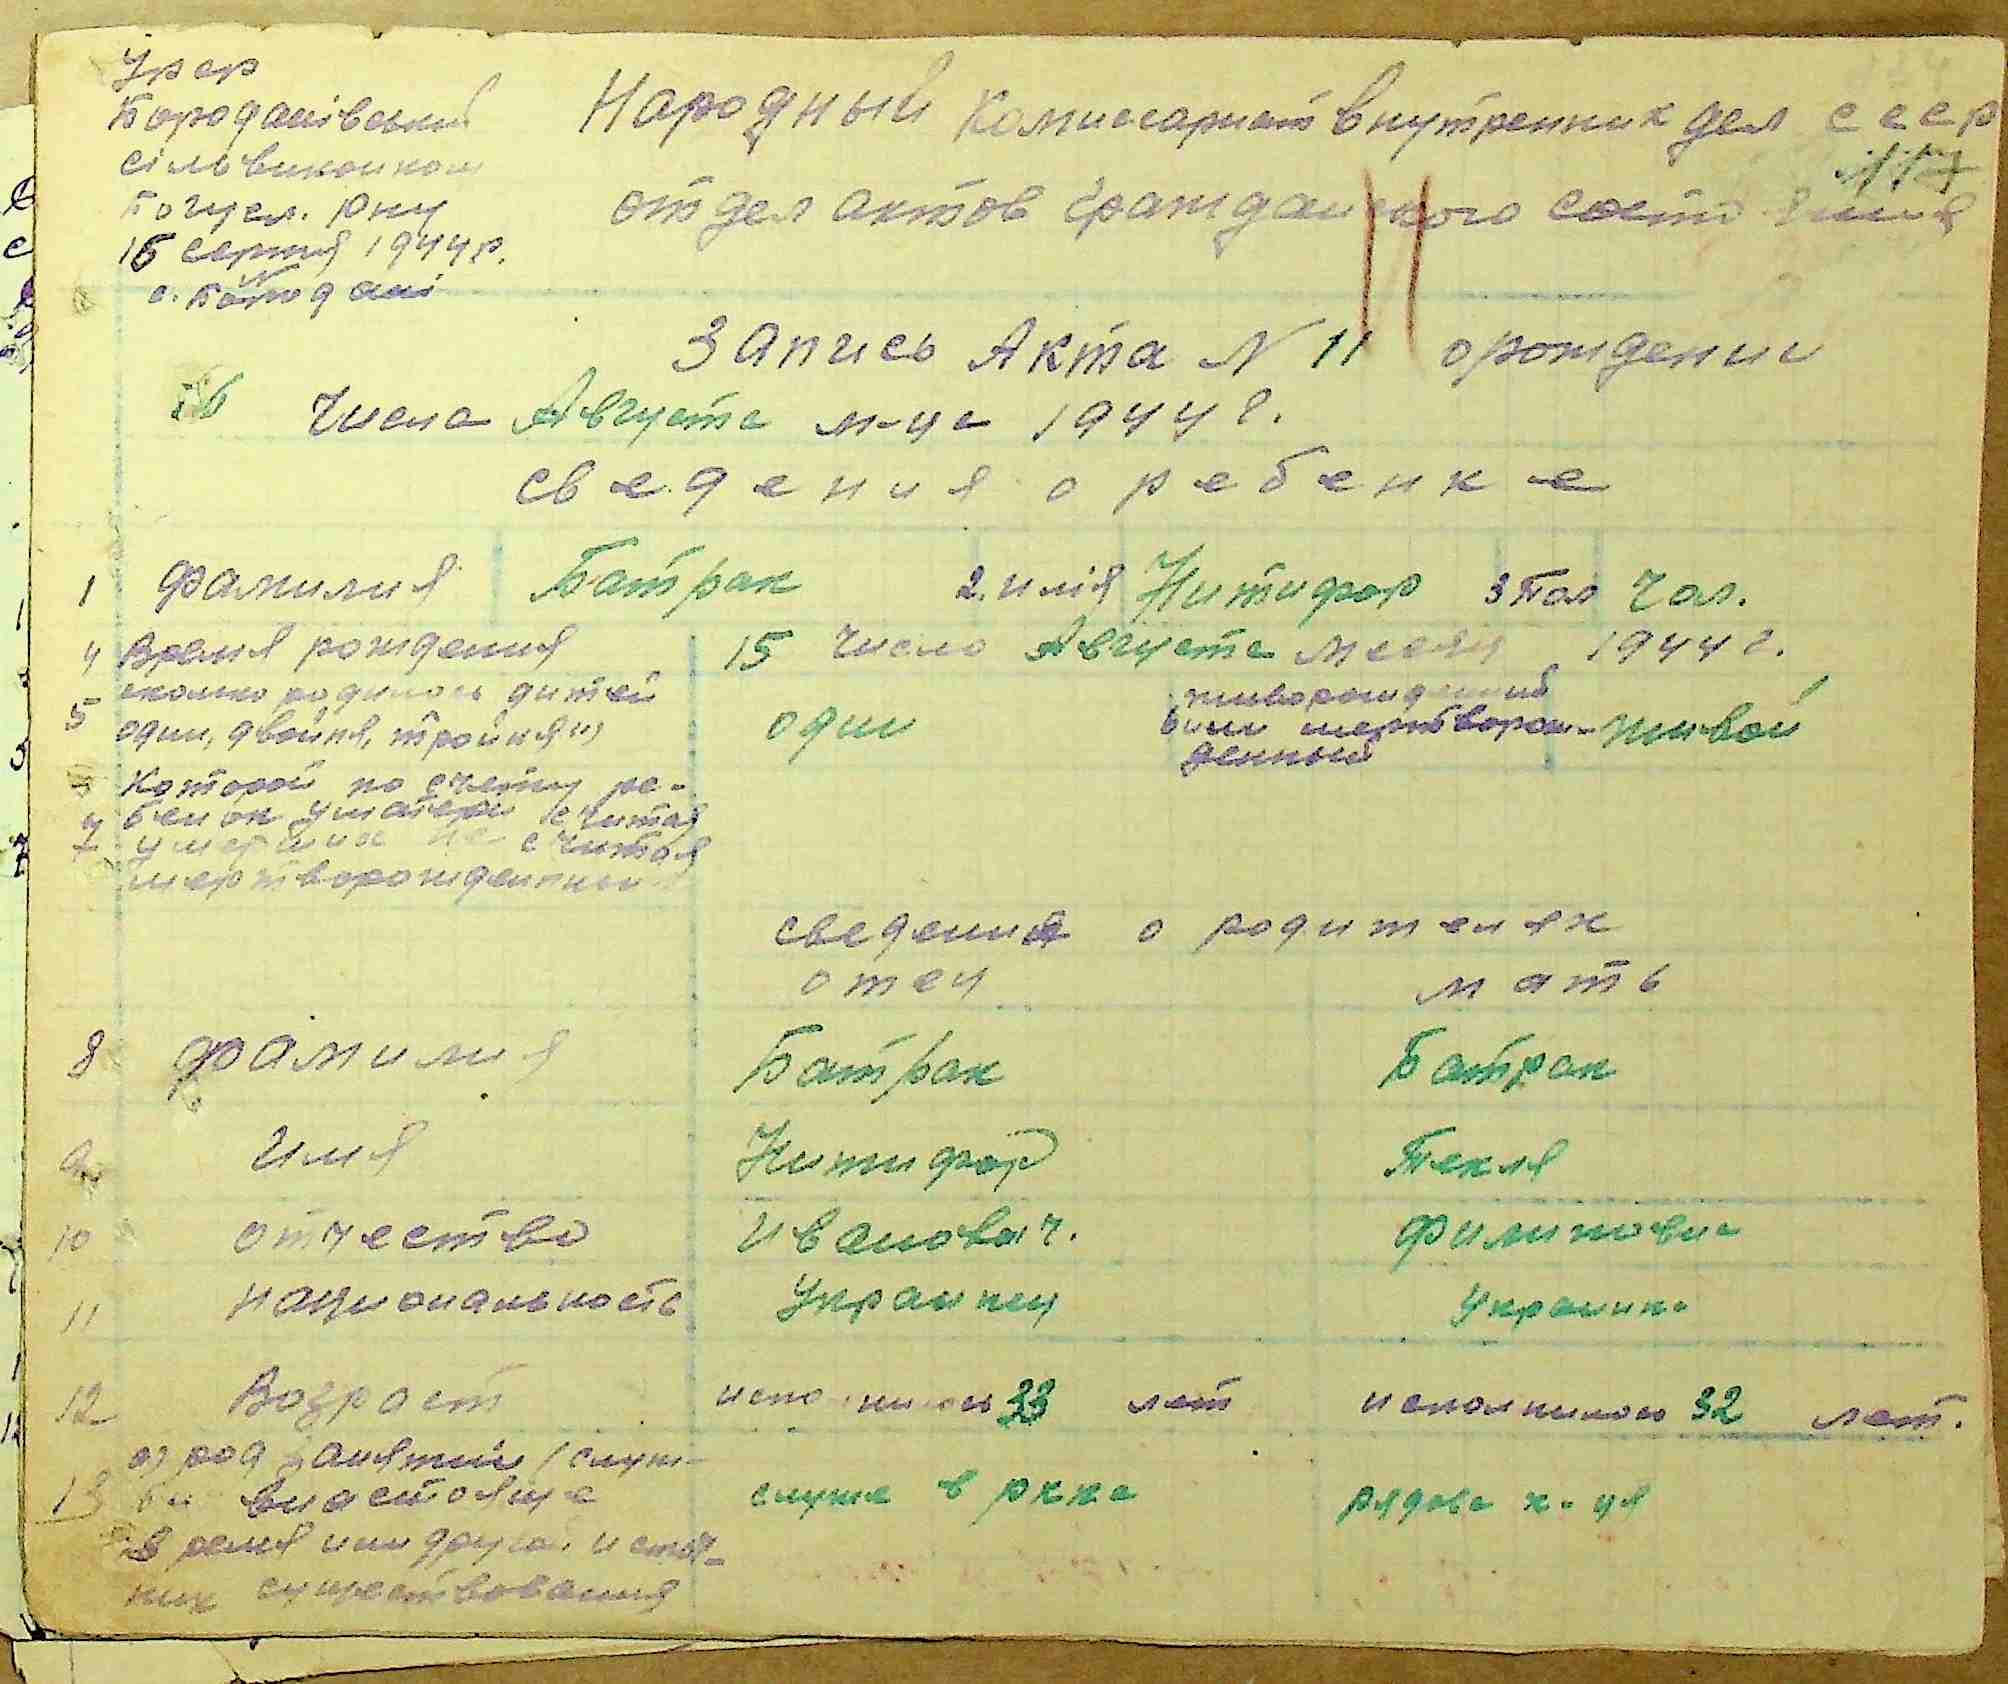 Урср
Бородаківський
сільвиконком
Богусл. рну
16 серпня 1944 р.
с. Бородані
Народный Комиссариат внутренних дел СССР
117
отдел актов гражданского состояния
Запись Акта N 11 о рождении
16 числа Августа м-ца 1944 г.
сведения о ребенке
1 фамилия Батрак 2. имія Никифор 3 Пол чол.
4 Время рождения 15 число Августа месяц 1944 г.
5 сколько родилось дитей
один, двойня, тройня) один
6 живорожденний
или мертворож-
денный живой
7 Которой по счету ре-
бенок у матери считая
умерших не считая
мертворожденных
сведения о родителях
отец мать
8 фамилия Батрак Батрак
9 имя Никифор Текля
10 отчество Иванович. Филиповна
11 национальность Украинец Украинк.
12 Возраст исполнилось 33 лет исполнилось 32 лет.
13 а) род занятий (служ-
бы в настояще
время или другой источ-
ник существования служе в ркка рядова к-ця